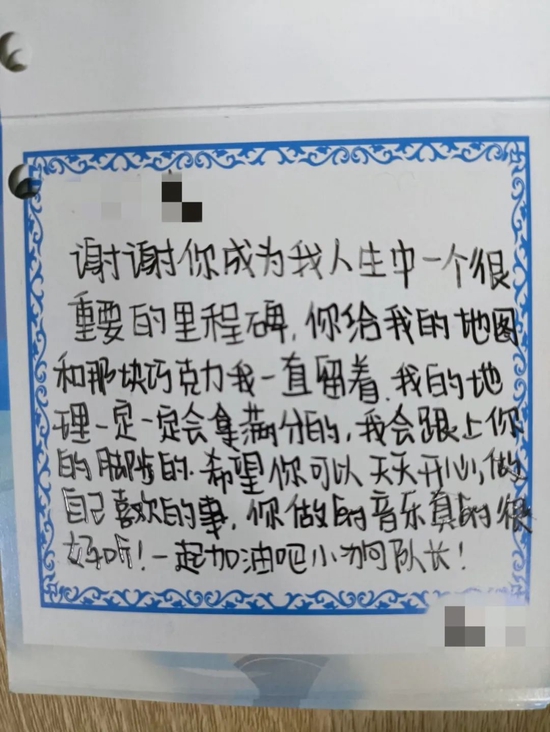 谢谢你成为我人生中一个很
重要的里程碑,你给我的地图
和那块巧克力我一直留着,我的地
理一定一定会拿满分的,我会跟上你
的脚步的.希望你可以天天开心,做
自己喜欢的事,你做的音乐真的很
好听!一起加油吧小队长!